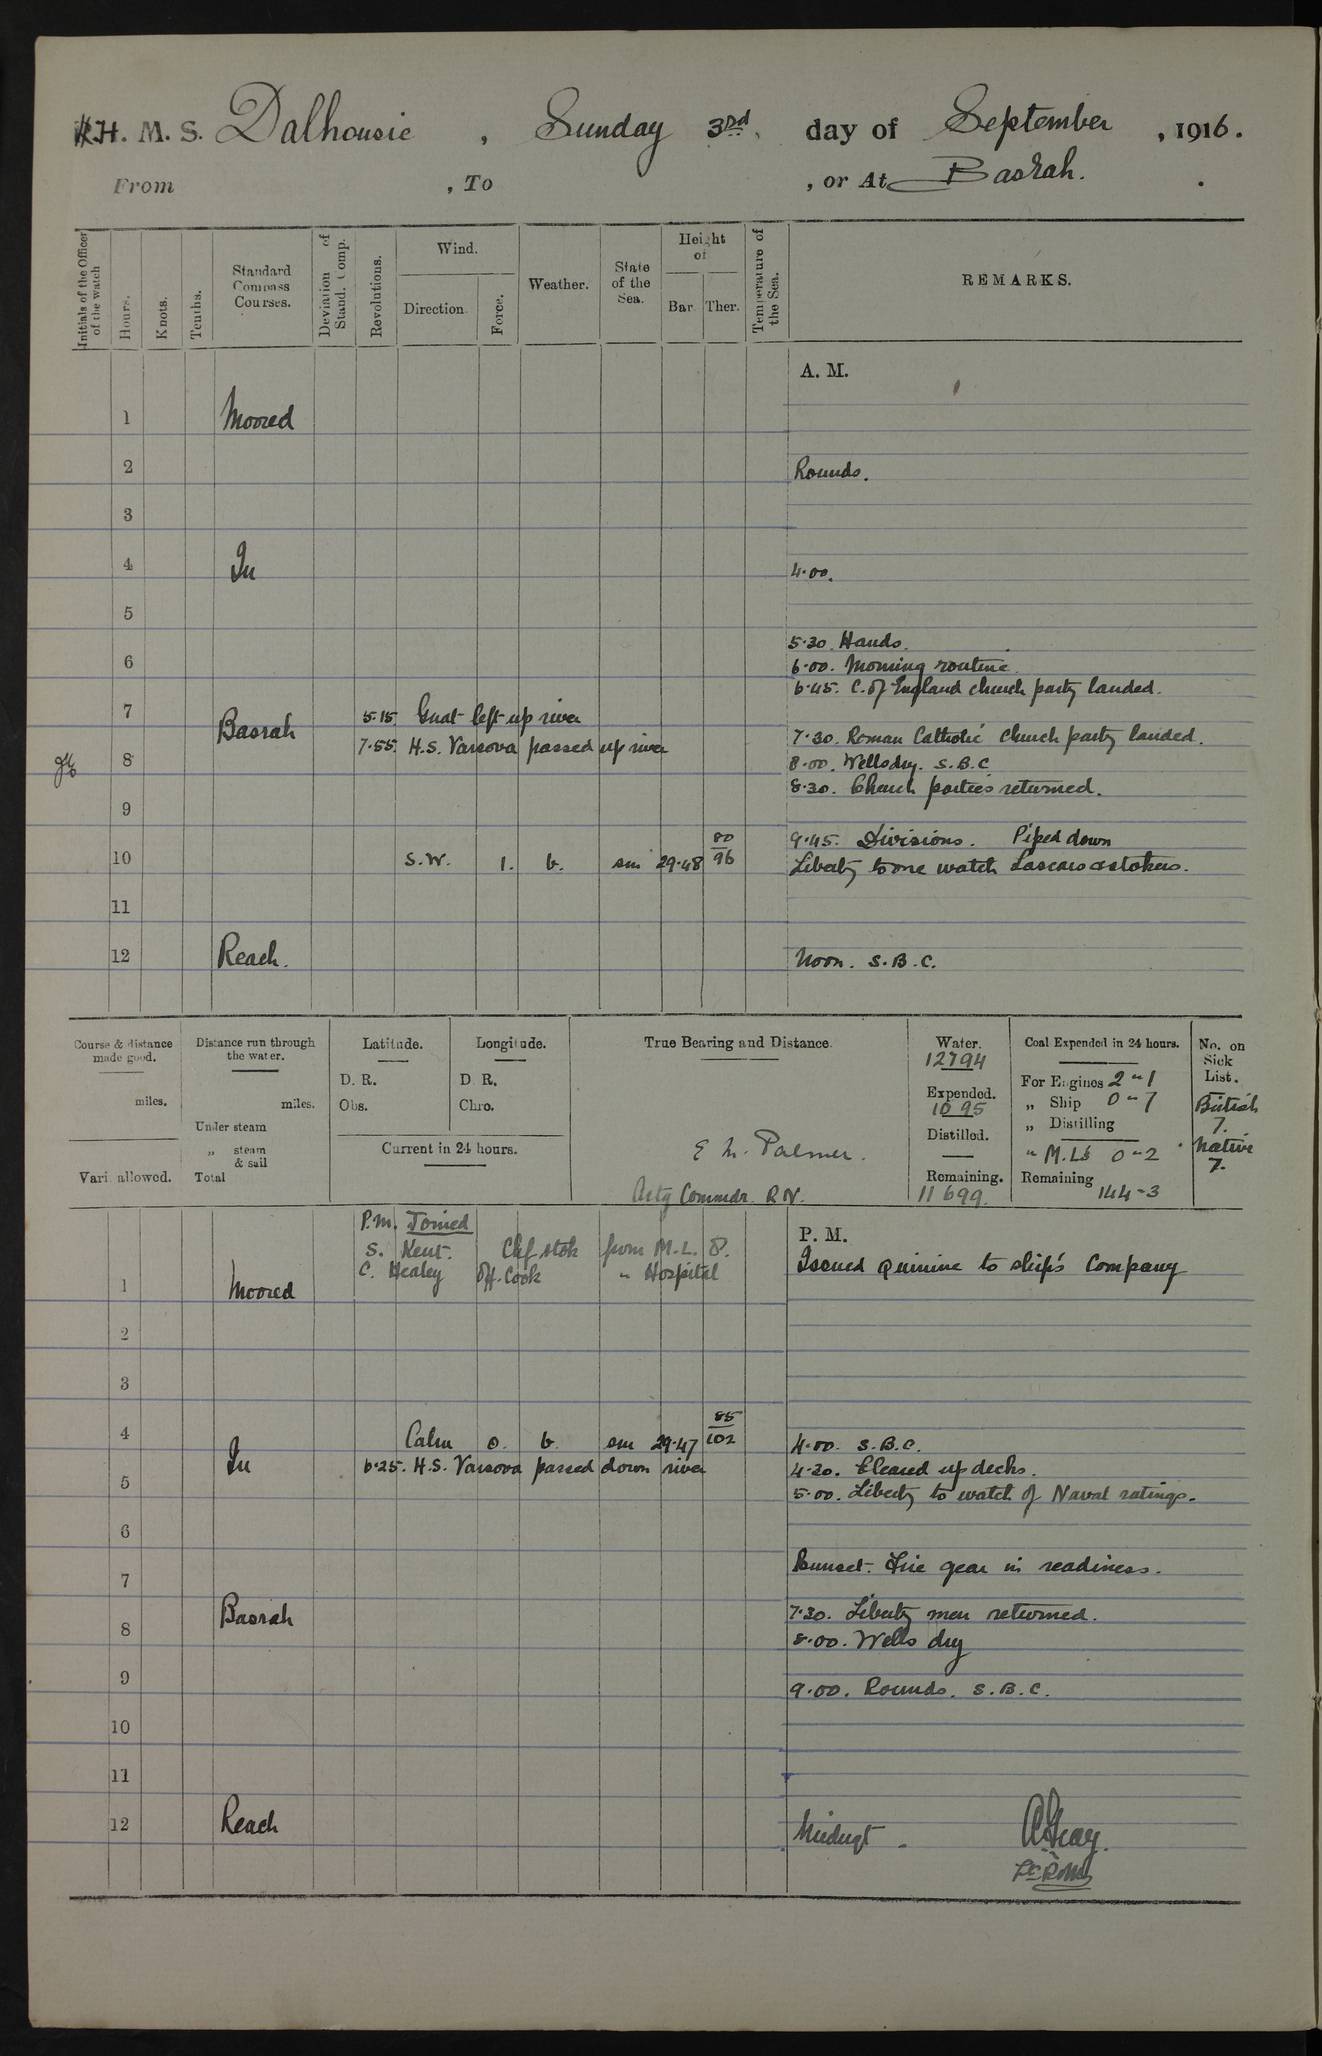 H. M. S. Dalhousie, Sunday 3rd. day of September, 1916.
From , To , or At Basrah.
Initials of the Officer of the watch
Hours.
Knots.
Tenths.
Standard Compass Courses.
Deviation of Stand. Comp.
Revolutions.
Wind.
Direction.
Force.
Weather.
State of the Sea.
Height of
Bar. Ther.
Temperature of the Sea.
REMARKS.
A. M.
1 Moored
2 Rounds.
3
4 In 4.00.
5
5.30. Hands.
6 6.00. Morning routine
6.45. C. of England church party landed.
7 5.15. Gnat left up river
Basrah 7.30. Roman Catholic church party landed.
7.55. H.S. Varsova passed up river
8 8.00. Wells dry. S.B.C
8.30. Church parties returned.
9
9.45. Divisions. Piped down
10 S.W. 1. b. sm 29.48 80/96 Liberty to one watch Lascars & stokers.
11
12 Reach. Noon. S.B.C.
Course & distance made good.
miles.
Vari. allowed.
Distance run through the water.
miles.
Under steam
„ steam & sail
Total
Latitude.
D. R.
Obs.
Longitude.
D. R.
Chro.
Current in 24 hours.
True Bearing and Distance.
E M. Palmer.
Actg Commdr. R N.
Water.
12794
Expended.
1095
Distilled.
Remaining.
11699
Coal Expended in 24 hours.
For Engines 2 - 1
„ Ship 0 - 7
„ Distilling
" M.L's 0 - 2
Remaining 144-3
No. on Sick List.
British
7.
Native
7.
P.M. Joined
S. Kent. Chf stok from M.L. 8.
C. Healey Off. Cook " Hospital
P. M.
Issued quinine to ship's company
1 Moored
2
3
4 Calm 0. b. sm 29.47 85/102 4.00. S.B.C.
In 6.25. H.S. Varsova passed down river 4.30. Cleared up decks.
5 5.00. Liberty to watch of Naval ratings.
6
Sunset. Fire gear in readiness.
7
Basrah 7.30. Liberty men returned.
8 8.00. Wells dry
9 9.00. Rounds. S.B.C.
10
11
12 Reach Midngt.